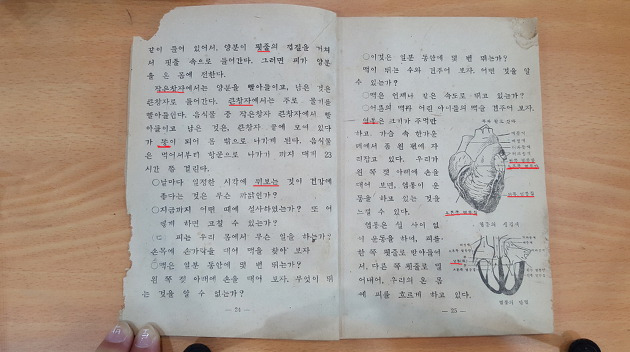 같이 들어 있어서, 양분이 핏줄의 껍질을 거쳐
서 핏줄 속으로 들어간다. 그러면 피가 양분
을 온 몸에 전한다.
작은창자에서는 양분을 빨아들이고, 남은 것은
큰창자로 들어간다. 큰창자에서는 주로 물기를
빨아들인다. 음식물 중 작은창자 큰창자에서 빨
아들이고 남은 것은, 큰창자 끝에 모여 있다
가 똥이 되어 몸 밖으로 나가게 된다. 음식물
은 먹어서부터 뒷문으로 나가기 까지 대개 23
시간 쯤 걸린다.
○날마다 일정한 시각에 뒤보는 것이 건강에
좋다는 것은 무슨 까닭인가?
○지금까지 어떤 때에 설사하였는가? 또 어
떻게 하면 고칠 수 있는가?
피는 우리 몸에서 무슨 일을 하는가?
손목에 손가락을 대어 맥을 찾아 보자
○맥은 일분 동안에 몇 번 뛰는가?
왼 쪽 젖 아래에 손을 대어 보자. 무엇이 뛰
는 것을 알 수 없는가?
— 24 —
○이것은 일분 동안에 몇 번 뛰는가?
맥이 뛰는 수와 견주어 보자. 어떤 것을 알
수 있는가?
○맥은 언제나 같은 속도로 뛰고 있는가?
○어른의 맥과 어린 아이들의 맥을 견주어 보자.
염통은 크기가 주먹만
하고. 가슴 속 한가운
데에서 좀 왼 편에 자
리잡고 있다. 우리가
왼 쪽 젖 아래에 손을
대어 보면, 염통이 운
동을 하고 있는 것을
느낄 수 있다.
염통의 생김새
염통은 쉴 사이 없
이 운동을 하여, 피를
한 쪽 핏줄로 받아들여
서, 다른 쪽 핏줄로 밀
어내어, 우리의 온 몸
에 피를 흐르게 하고 있다.
염통의
— 25 —